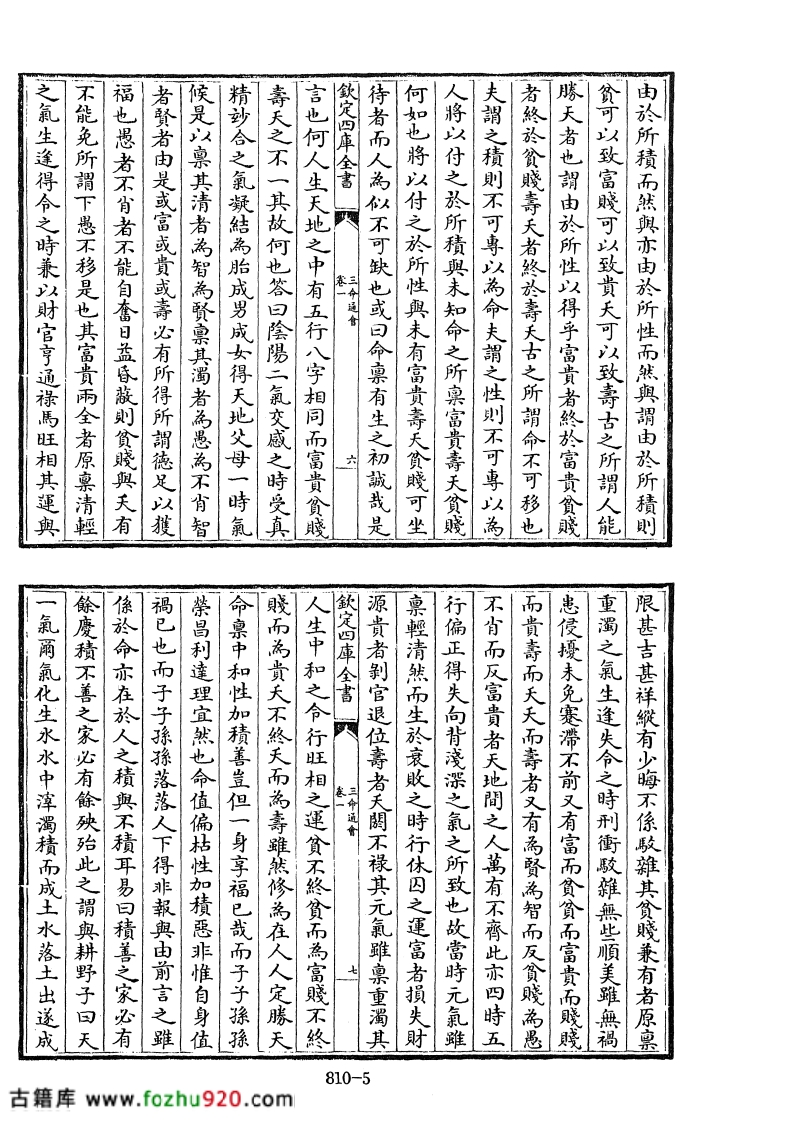 由於所積而然與亦由於所性而然與謂由於所積則
貧可以致富賤可以致貴夭可以致壽古之所謂人能
勝天者也謂由於所性以得乎富貴者終於富貴貧賤
者終於貧賤壽夭者終於壽夭古之所謂命不可移也
夫謂之積則不可專以為命夫謂之性則不可專以為
人將以付之於所積與未知命之所禀富貴壽夭貧賤
何如也將以付之於所性與未有富貴壽夭貧賤可坐
待者而人為似不可缺也或曰命禀有生之初誠哉是
欽定四庫全書
三命通會
卷一
六
言也何人生天地之中有五行八字相同而富貴貧賤
壽夭之不一其故何也答曰陰陽二氣交感之時受真
精妙合之氣凝結為胎成男成女得天地父母一時氣
候是以禀其清者為智為賢禀其濁者為愚為不肖智
者賢者由是或富或貴或壽必有所得所謂德足以獲
福也愚者不肖者不能自奮日益昏蔽則貧賤與夭有
不能免所謂下愚不移是也其富貴兩全者原禀清輕
之氣生逢得令之時兼以財官亨通祿馬旺相其運與
限甚吉甚祥縱有少晦不係駁雜其貧賤兼有者原禀
重濁之氣生逢失令之時刑衝駁雜無些順美雖無禍
患侵擾未免蹇滯不前又有富而貧貧而富貴而賤賤
而貴壽而夭夭而壽者又有為賢為智而反貧賤為愚
不肖而反富貴者天地間之人萬有不齊此亦四時五
行偏正得失向背淺深之氣之所致也故當時元氣雖
禀輕清然而生於衰敗之時行休囚之運富者損失財
源貴者剝官退位壽者夭閼不祿其元氣雖禀重濁其
欽定四庫全書
三命通會
卷一
七
人生中和之令行旺相之運貧不終貧而為富賤不終
賤而為貴夭不終夭而為壽雖然修為在人人定勝天
命禀中和性加積善豈但一身享福已哉而子子孫孫
榮昌利達理宜然也命值偏枯性加積惡非惟自身值
禍已也而子子孫孫落落人下得非報與由前言之雖
係於命亦在於人之積與不積耳易曰積善之家必有
餘慶積不善之家必有餘殃殆此之謂與耕野子曰天
一氣爾氣化生水水中滓濁積而成土水落土出遂成
810-5
古籍库 www.fozhu920.com